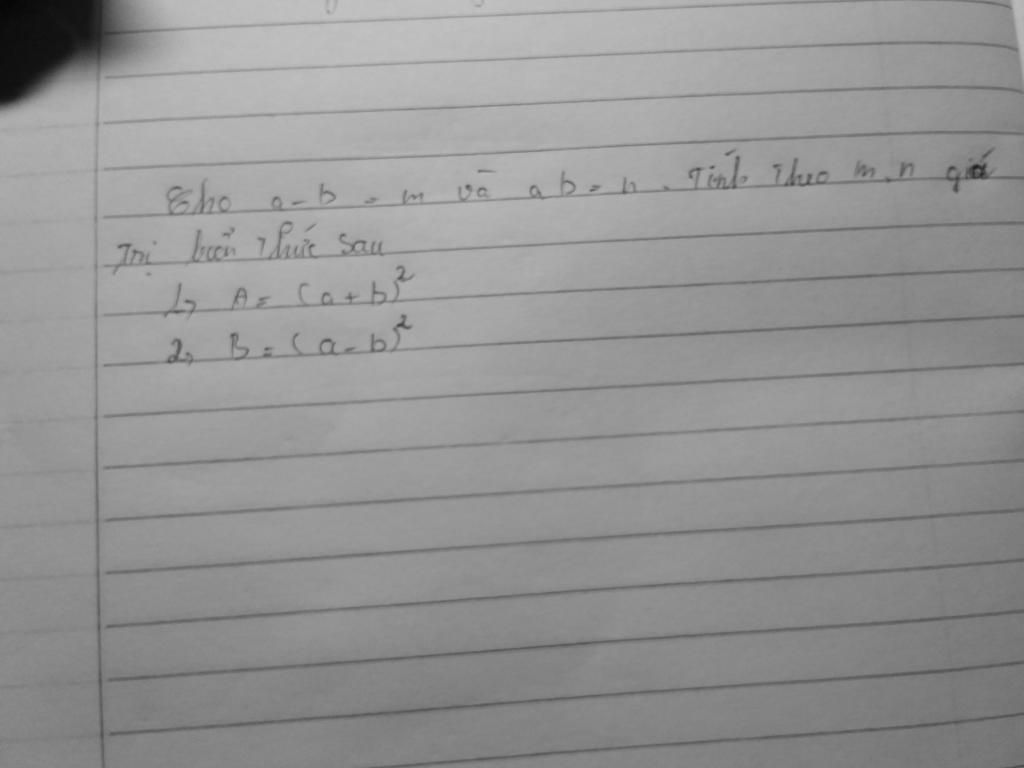 Cho a - b = m và ab = n. Tính theo m, n giá
trị biểu thức sau
1, A = (a + b)²
2, B = (a - b)²